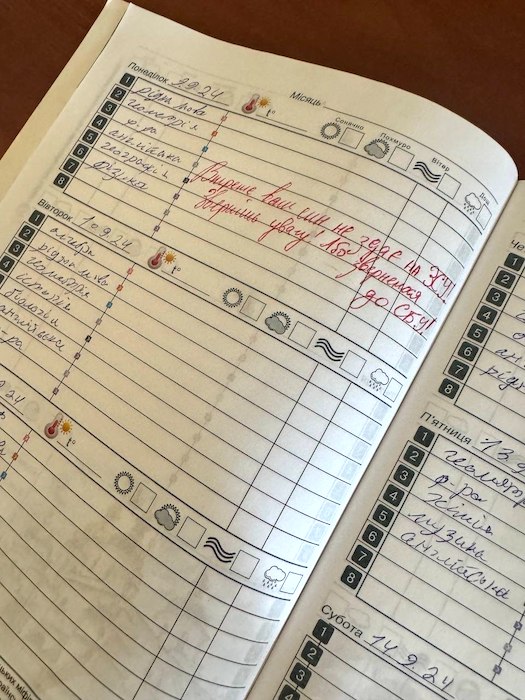 Місяць
Понеділок 9.9.24
Сонячно
Похмуро
Вітер
Дощ
1 рідна мова
2 геометрія
3
4 ф-ра
5 англійська
6 географія
7 фізика
8
Ваш син не здає на ЗСУ!
Зверніть увагу! Або звернемся
до СБУ!
Вівторок 10.9.24
1 алгебра
2 рідна мова
3 геометрія
4 історія
біологія
англійська
ф-ра
9.24
5
6
7
8
П'ятниця 13.9
1 геометр
2 ф-ра
3 хімія
4
5 музика
6 англійська
7
8
Субота 14.9.24
1
2
3
4
5
6